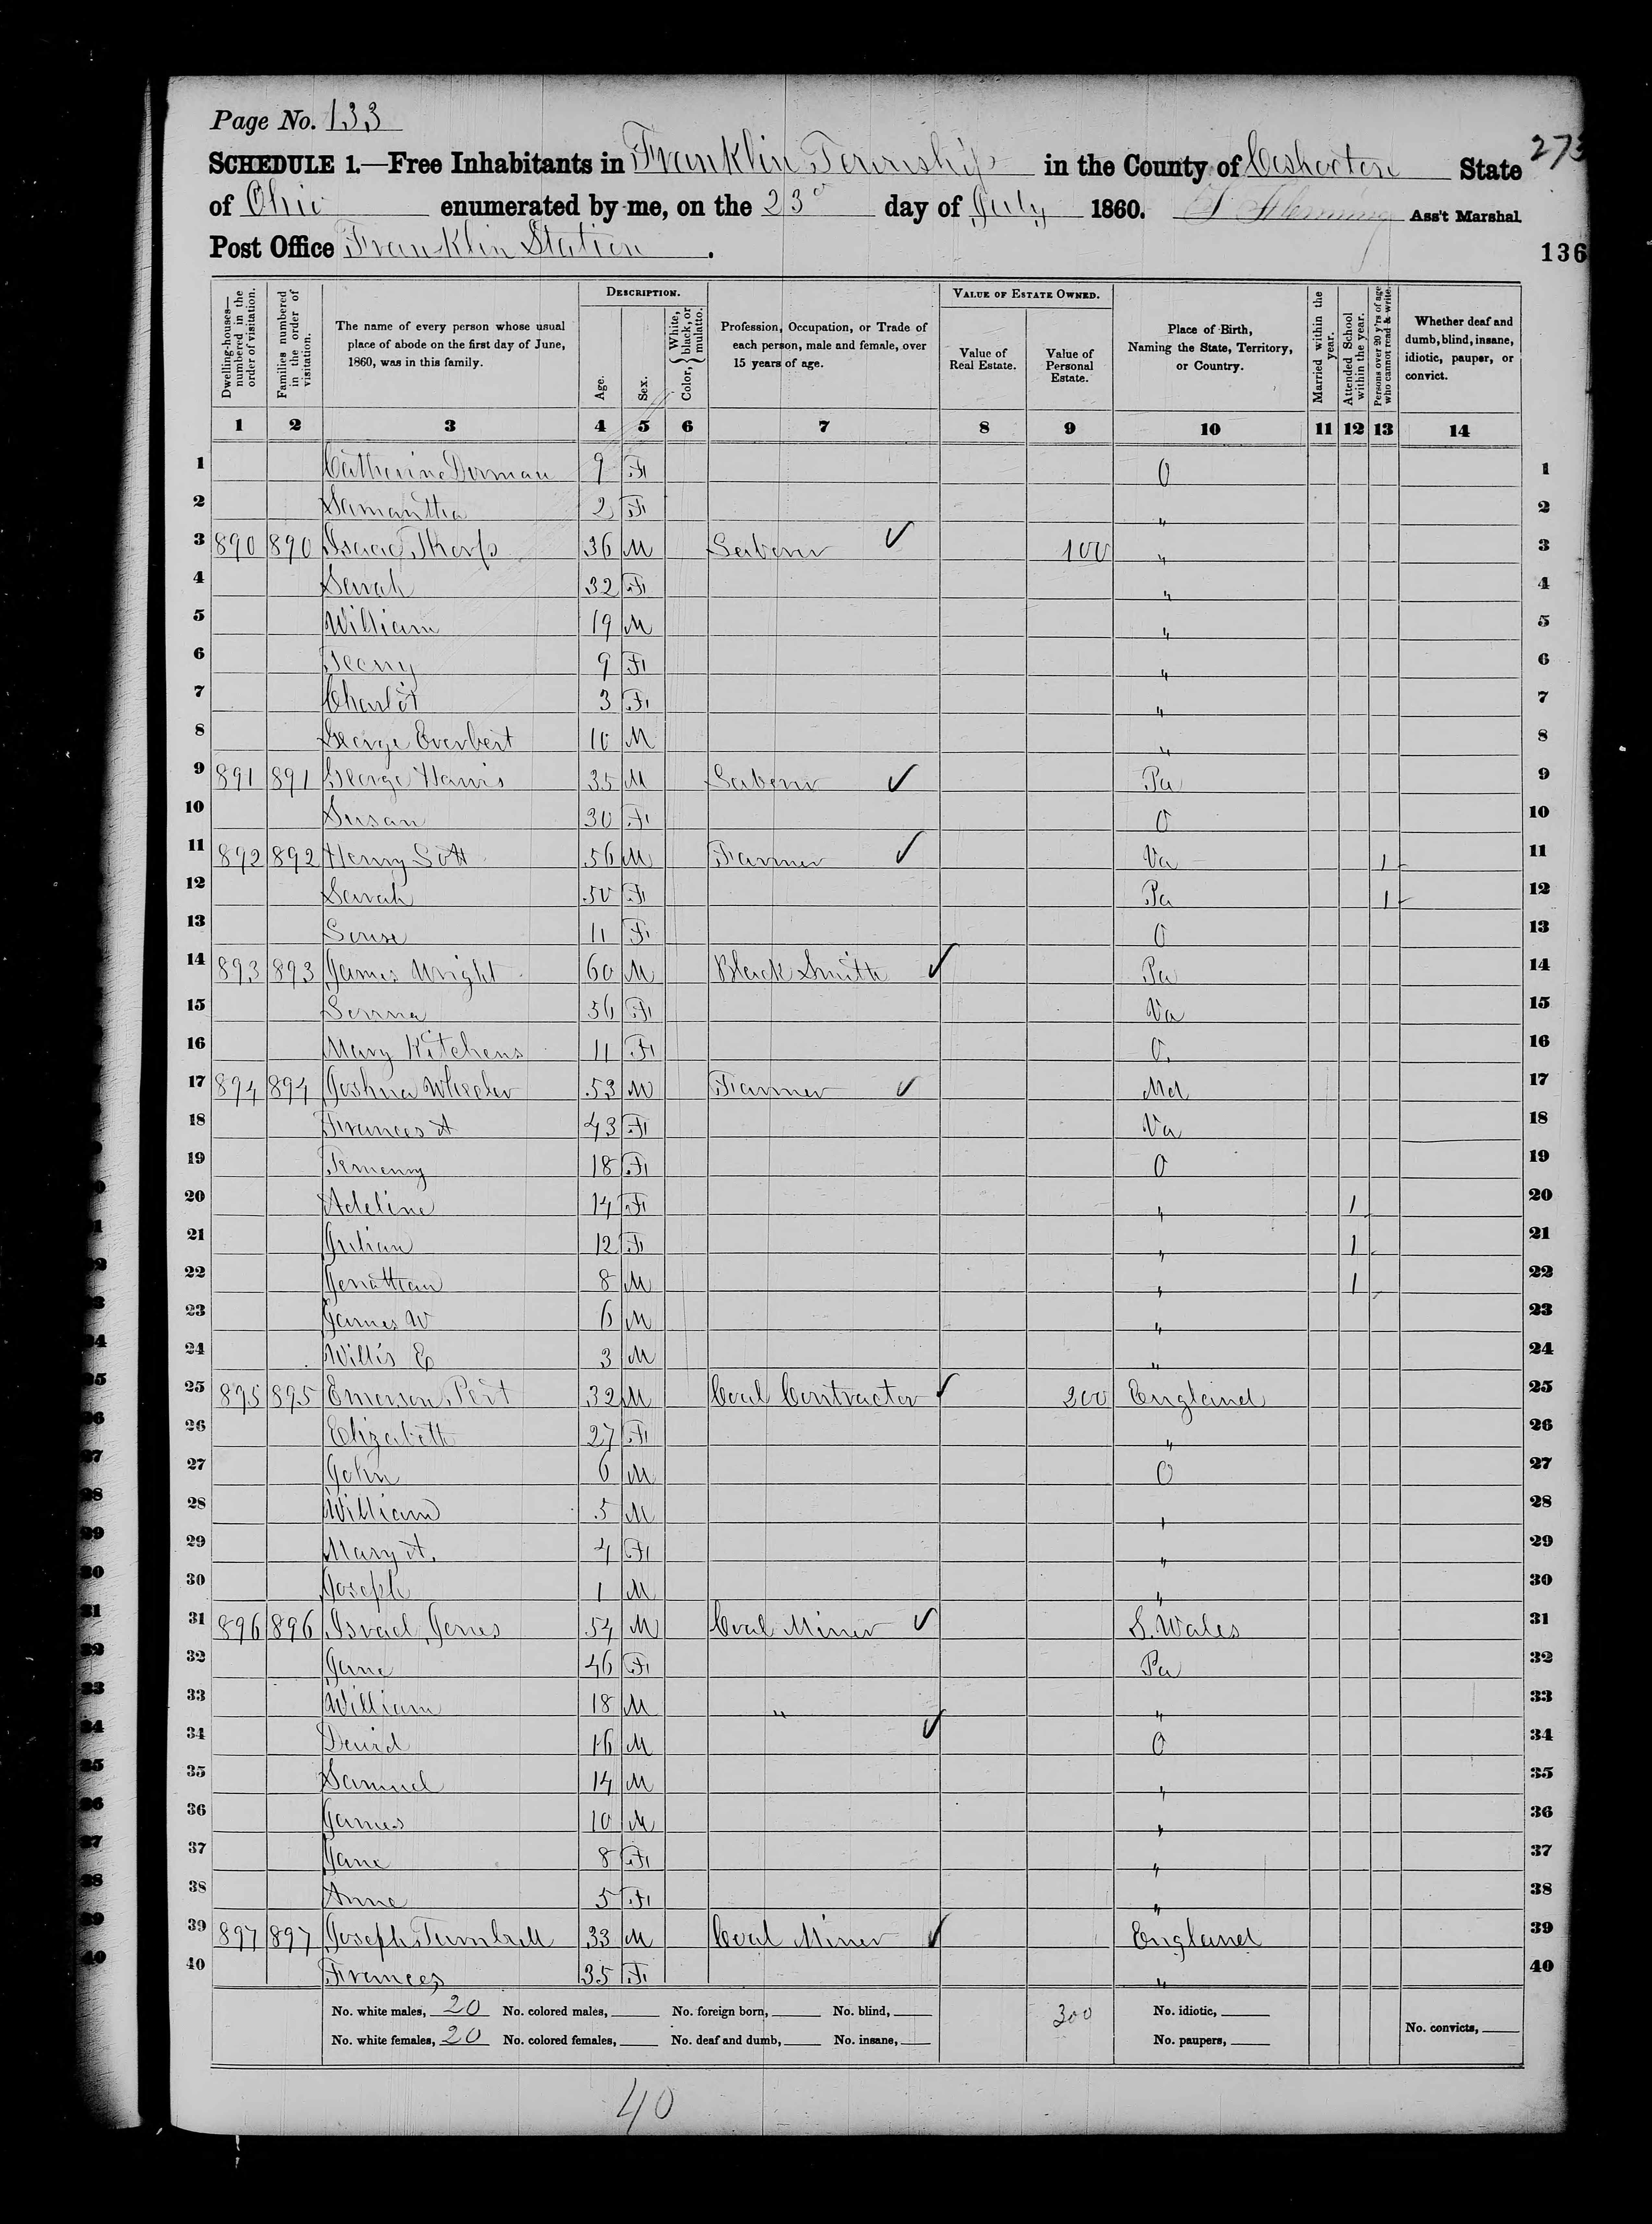 Page No. 133
SCHEDULE 1.—Free Inhabitants in Franklin Township in the County of Coshocton State 273
of Ohio enumerated by me, on the 23d day of July 1860. Fleming Ass't Marshal.
Post Office Franklin Station. 136
Dwelling-houses—numbered in the order of visitation. Families numbered in the order of visitation. The name of every person whose usual place of abode on the first day of June, 1860, was in this family. DESCRIPTION. Age. Sex. Color, {White, black, or mulatto. Profession, Occupation, or Trade of each person, male and female, over 15 years of age. VALUE OF ESTATE OWNED. Value of Real Estate. Value of Personal Estate. Place of Birth, Naming the State, Territory, or Country. Married within the year. Attended School within the year. Persons over 20 y'rs of age who cannot read & write. Whether deaf and dumb, blind, insane, idiotic, pauper, or convict.
1 2 3 4 5 6 7 8 9 10 11 12 13 14
1 Catherine Dorman 9 F O 1
2 Samantha 2 F " 2
3 890 890 Isaac Thorp 36 M Laborer ✓ 100 " 3
4 Sarah 32 F " 4
5 William 19 M " 5
6 9 F " 6
7 Charlot 3 F " 7
8 George Everbert 10 M " 8
9 891 891 George Harris 35 M Laborer ✓ Pa 9
10 Susan 30 F O 10
11 892 892 Henry Sott 56 M Farmer ✓ Va 1 11
12 Sarah 50 F Pa 1 12
13 11 F O 13
14 893 893 James Wright 60 M Black Smith ✓ Pa 14
15 56 F Va 15
16 Mary Kitchens 11 F O. 16
17 894 894 Joshua Wheeler 53 M Farmer ✓ Md 17
18 Frances A 43 F Va 18
19 18 F O 19
20 Adeline 14 F " 1 20
21 Julian 12 F " 1 21
22 Jonathan 8 M " 1 22
23 James W 6 M " 23
24 Willis E 3 M " 24
25 895 895 Emerson Port 32 M Coal Contractor ✓ 200 England 25
26 Elizabeth 27 F " 26
27 John 6 M O 27
28 William 5 M " 28
29 Mary A. 4 F " 29
30 Joseph 1 M " 30
31 896 896 Israel Jones 54 M Coal Miner ✓ S. Wales 31
32 Jane 46 F Pa 32
33 William 18 M " " 33
34 David 16 M ✓ O 34
35 Samuel 14 M " 35
36 James 10 M " 36
37 Jane 8 F " 37
38 Anne 5 F " 38
39 897 897 Joseph Turnbull 33 M Coal Miner ✓ England 39
40 Frances 35 F " 40
No. white males, 20 No. colored males, No. foreign born, No. blind, 300 No. idiotic,
No. white females, 20 No. colored females, No. deaf and dumb, No. insane, No. paupers, No. convicts,
40